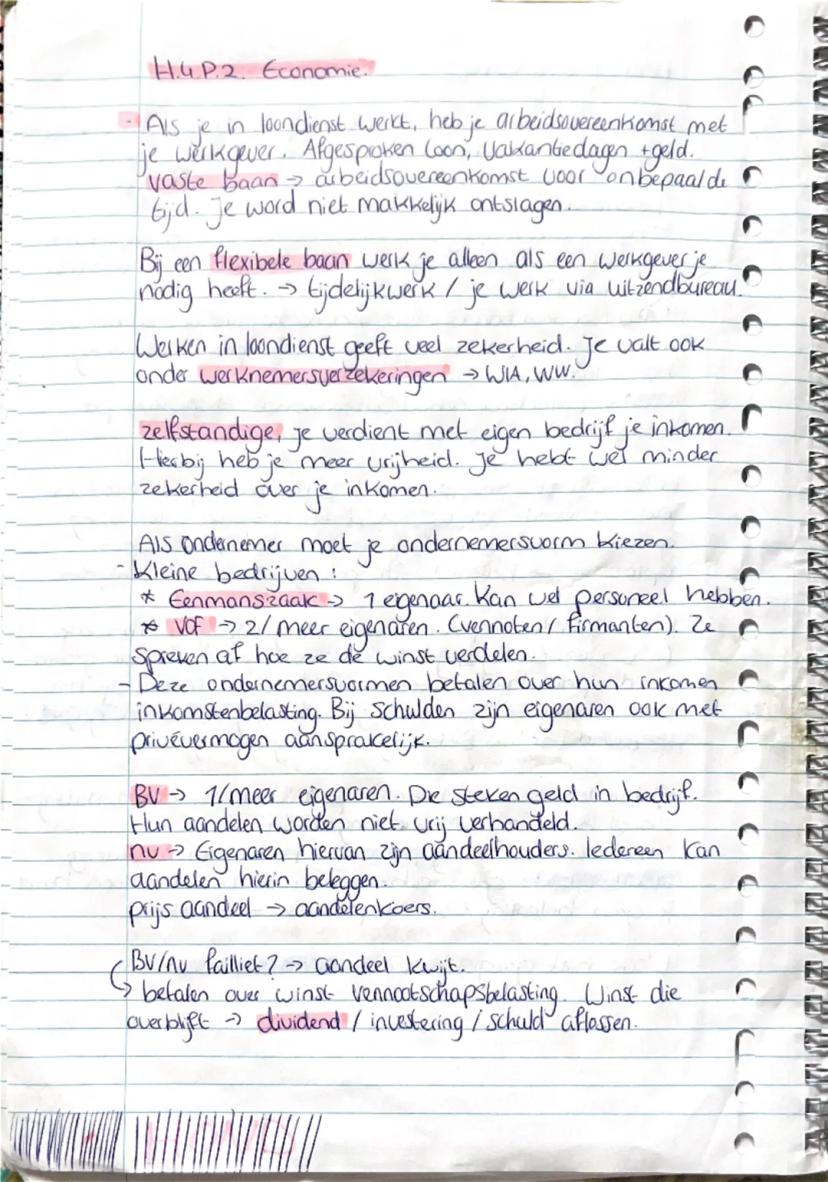 H.4 P.2. Economie.
- Als je in loondienst werkt, heb je arbeidsovereenkomst met
je werkgever. Afgesproken loon, vakantiedagen + geld.
vaste baan → arbeidsovereenkomst voor onbepaalde
tijd. Je word niet makkelijk ontslagen.
Bij een flexibele baan werk je alleen als een werkgever je
nodig heeft. → tijdelijkwerk / je werk via uitzendbureau.
Werken in loondienst geeft veel zekerheid. Je valt ook
onder werknemersverzekeringen → WIA, WW.
zelfstandige, je verdient met eigen bedrijf je inkomen.
Hierbij heb je meer vrijheid. Je hebt wel minder
zekerheid over je inkomen.
Als ondernemer moet je ondernemersvorm kiezen.
- Kleine bedrijven :
* Eenmanszaak → 1 eigenaar. Kan wel personeel hebben.
* VOF → 2/meer eigenaren. (vennoten / firmanten). Ze
spreken af hoe ze de winst verdelen.
- Deze ondernemersvormen betalen over hun inkomen
inkomstenbelasting. Bij schulden zijn eigenaren ook met
privévermogen aansprakelijk.
BV → 1/meer eigenaren. Die steken geld in bedrijf.
Hun aandelen worden niet vrij verhandeld.
nv → Eigenaren hiervan zijn aandeelhouders. Iedereen kan
aandelen hierin beleggen.
prijs aandeel → aandelenkoers.
BV/nv failliet? → aandeel kwijt.
↳ betalen over winst vennootschapsbelasting. Winst die
overblijft → dividend / investering / schuld aflossen.